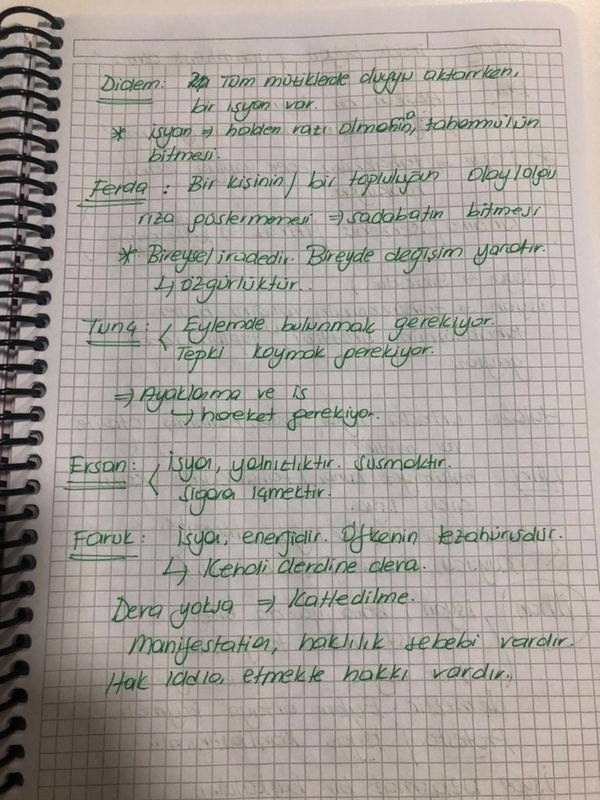 Didem: Tüm müziklerde duygu aktarırken,
bir isyan var.
* isyan => halden razı olmama, tahammülün
bitmesi.
Ferda: Bir kişinin / bir topluluğun olay/olgu
rıza göstermemesi => sadakatin bitmesi
* Bireysel iradedir. Bireyde değişim yaratır.
↳ özgürlüktür..
Tunç: < Eylemde bulunmak gerekiyor.
Tepki koymak gerekiyor.
=> Ayaklanma ve is
↳ hareket gerekiyor.
Ersan: < isyan, yalnızlıktır. Susmaktır.
Sigara içmektir.
Faruk: isyan, enerjidir. Öfkenin tezahürüdür.
↳ Kendi derdine deva.
Deva yoksa => Katledilme.
manifestation, haklılık sebebi vardır.
Hak iddia, etmekte hakkı vardır.